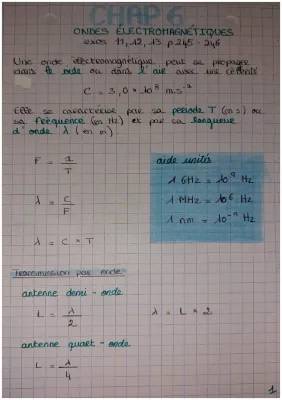 CHAP 6
ONDES ÉLECTROMAGNÉTIQUES
exos 11, 12, 13 p 245 - 246
Une onde électromagnétique peut se propager
dans le vide ou dans l'air avec une célérité
C = 3,0 × 10⁸ m.s⁻¹
Elle se caractérise par sa période T (en s) ou
sa fréquence (en Hz) et par sa longueur
d'onde λ (en m)
F = 1/T
λ = C/F
λ = C × T
aide unités
1 GHz = 10⁹ Hz
1 MHz = 10⁶ Hz
1 nm = 10⁻⁹ Hz
Transmission par onde
antenne demi-onde
L = λ/2 λ = L × 2
antenne quart-onde
L = λ/4
1